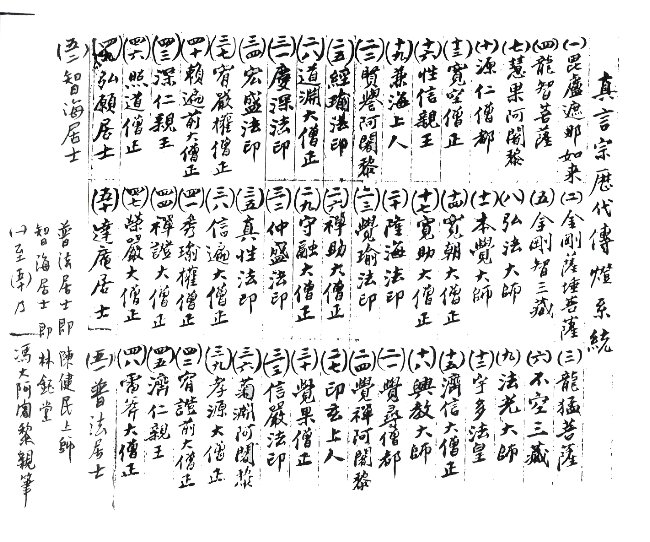 真言宗歷代傳燈系統
(一)毘盧遮那如来 (二)金剛薩埵菩薩 (三)龍猛菩薩
(四)龍智菩薩 (五)金剛智三藏 (六)不空三藏
(七)慧果阿闍黎 (八)弘法大師 (九)法光大師
(十)源仁僧都 (十一)本覺大師 (十二)宇多法皇
(十三)寛空僧正 (十四)寛朝大僧正 (十五)濟信大僧正
(十六)性信親王 (十七)寛助大僧正 (十八)興教大師
(十九)兼海上人 (二十)隆海法印 (二一)覺尋僧都
(二二)勝譽阿闍黎 (二三)覺瑜法印 (二四)覺禪阿闍黎
(二五)經瑜法印 (二六)禪助大僧正 (二七)印玄上人
(二八)道淵大僧正 (二九)守融大僧正 (三十)覺果僧正
(三一)慶深法印 (三二)仲盛法印 (三三)信嚴法印
(三四)宏盛法印 (三五)真性法印 (三六)菊淵阿闍黎
(三七)宥欲權僧正 (三八)信遍大僧正 (三九)孝源大僧正
(四十)賴遍前大僧正 (四一)秀瑜權僧正 (四二)宥證前大僧正
(四三)深仁親王 (四四)禪證大僧正 (四五)濟仁親王
(四六)照道僧正 (四七)榮嚴大僧正 (四八)雷斧大僧正
(四九)弘願居士 (五十)達庵居士 (五一)普法居士
(五二)智海居士
普法居士即陳健民上師
智海居士即林鈺堂
(一)至(五十)乃馮大阿闍黎親筆